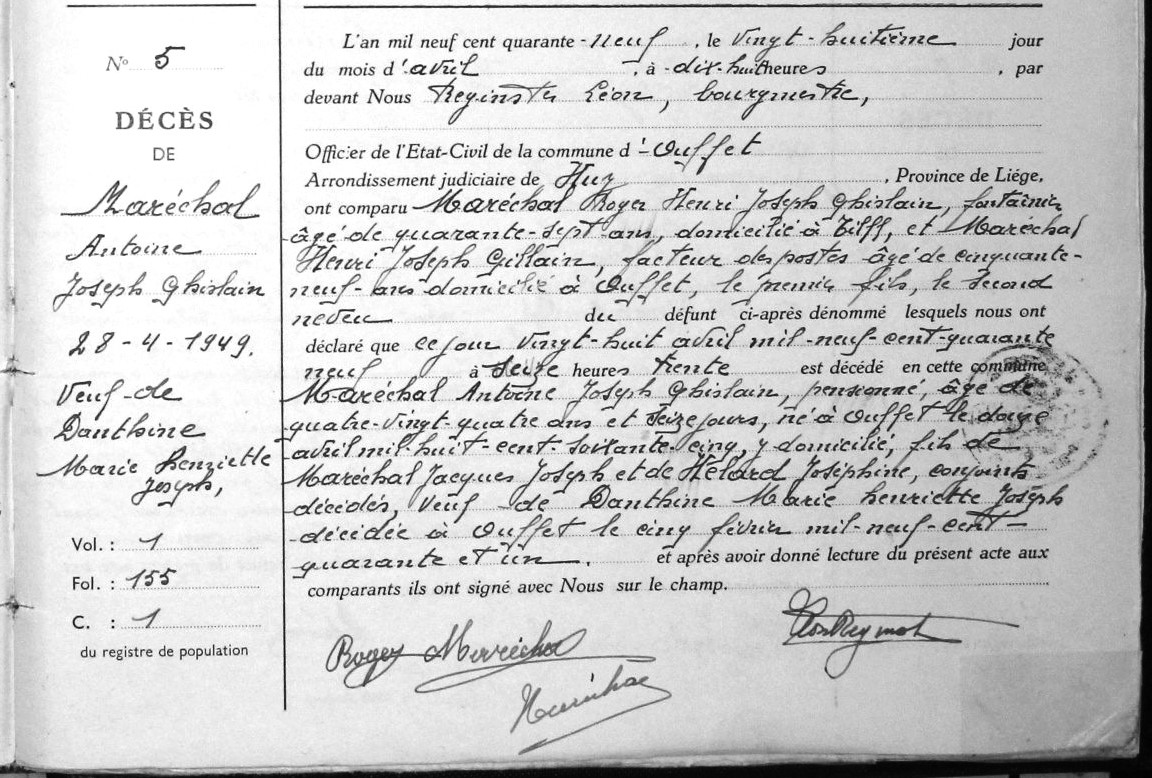 N° 5
DÉCÈS
DE
Maréchal
Antoine
Joseph Ghislain
28-4-1949.
Veuf de
Danthine
Marie henriette
Joseph,
Vol. : 1
Fol. : 155
C. : 1
du registre de population
L'an mil neuf cent quarante-neuf, le vingt-huitième jour
du mois d'avril, à dix-huit heures, par
devant Nous Reginster Léon, bourgmestre,
Officier de l'Etat-Civil de la commune d'Ouffet
Arrondissement judiciaire de Huy, Province de Liége,
ont comparu Maréchal Roger Henri Joseph Ghislain, fontainier
âgé de quarante-sept ans, domicilié à Tilff, et Maréchal
Henri Joseph Gillain, facteur des postes âgé de cinquante-
neuf-ans domicilié à Ouffet, le premier fils, le second
neveu du défunt ci-après dénommé lesquels nous ont
déclaré que ce jour vingt-huit avril mil-neuf-cent-quarante
neuf à seize heures trente est décédé en cette commune
Maréchal Antoine Joseph Ghislain, pensionné, âgé de
quatre-vingt-quatre ans et seize jours, né à Ouffet le douze
avril mil-huit-cent-soixante-cinq, y domicilié, fils de
Maréchal Jacques Joseph et de Hélard Joséphine, conjoints
décédés, veuf de Danthine Marie henriette Joseph
décédée à Ouffet le cinq février mil-neuf-cent-
quarante et un. et après avoir donné lecture du présent acte aux
comparants ils ont signé avec Nous sur le champ.
Roger Maréchal